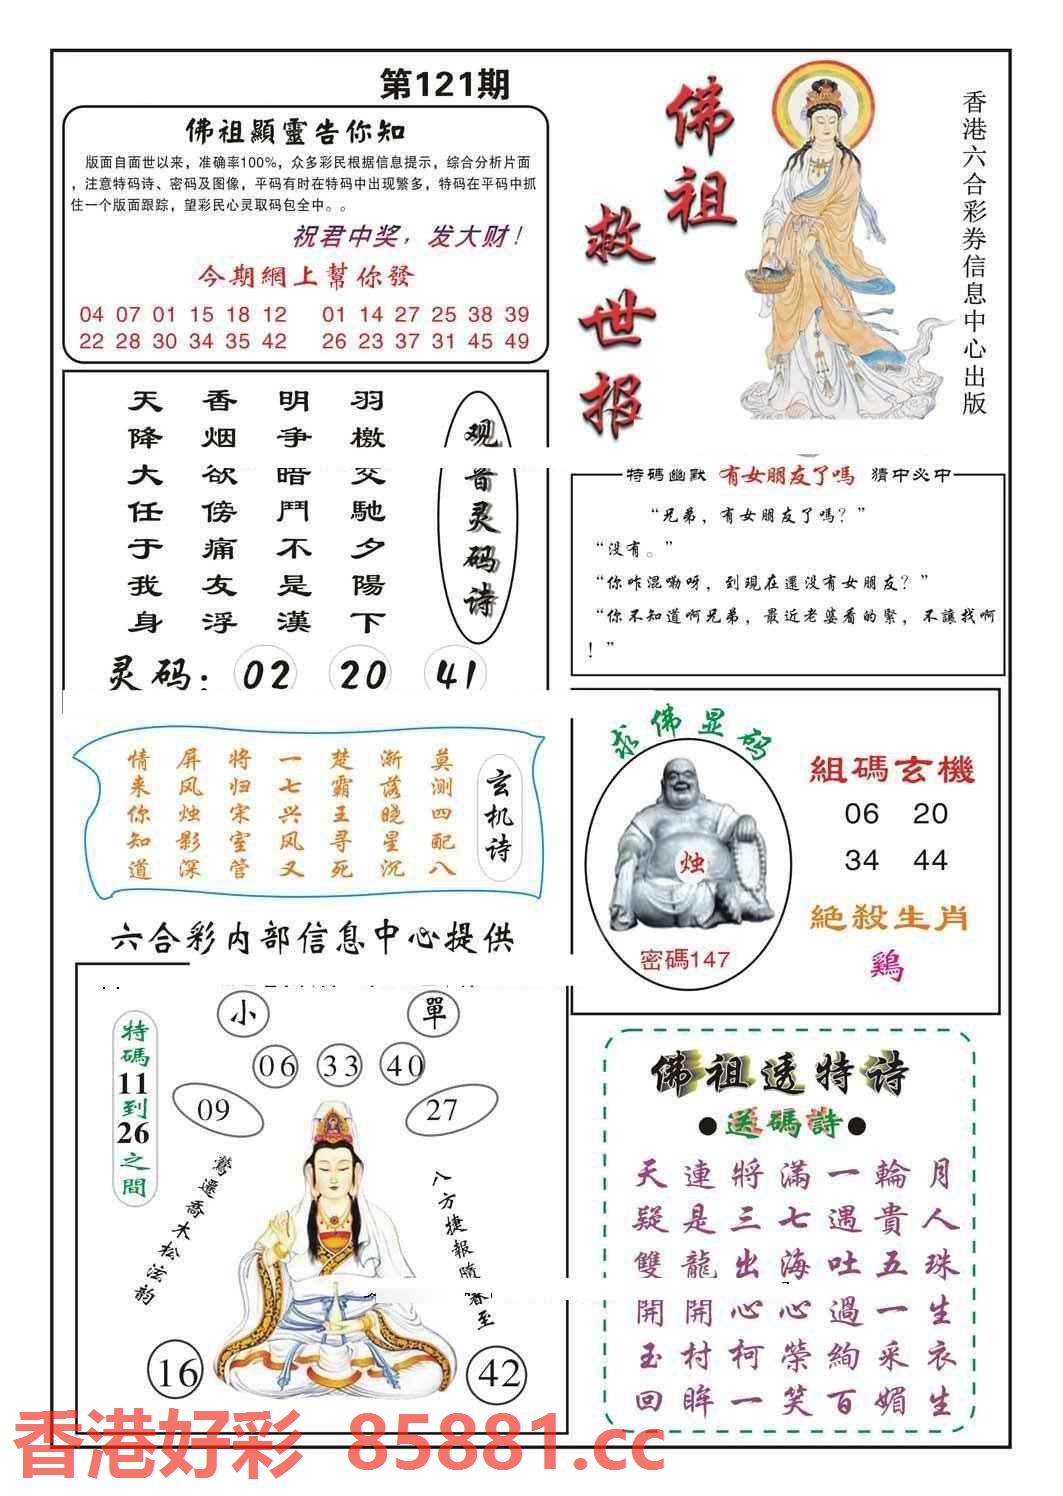 第121期
佛祖顯靈告你知
版面自面世以来，准确率100%，众多彩民根据信息提示，综合分析片面
，注意特码诗、密码及图像，平码有时在特码中出现繁多，特码在平码中抓
住一个版面跟踪，望彩民心灵取码包全中。。
祝君中奖，发大财！
今期網上幫你發
04 07 01 15 18 12 01 14 27 25 38 39
22 28 30 34 35 42 26 23 37 31 45 49
佛祖
救世报
香港六合彩券信息中心出版
观音灵码诗
羽檄交馳夕陽下
明争暗鬥不是漢
香烟欲傍痛友浮
天降大任于我身
灵码：02 20 41
特碼幽默 有女朋友了嗎 猜中必中
“兄弟，有女朋友了嗎？”
“没有。”
“你咋混嘞呀，到現在還没有女朋友？”
“你不知道啊兄弟，最近老婆看的緊，不讓找啊
！”
玄机诗
莫测四配八
渐落晓星沉
楚霸王寻死
一七兴风又
将归宋室管
屏风烛影深
情来你知道
求佛显码
烛
密碼147
組碼玄機
06 20
34 44
絶殺生肖
鷄
六合彩内部信息中心提供
小 單
06 33 40
09 27
特碼11到26之間
鶯遷喬木松泫韵
八方捷報隨春至
16 42
佛祖透特诗
●送碼詩●
天連將滿一輪月
疑是三七遇貴人
雙龍出海吐五珠
開開心心過一生
玉村柯榮絢采衣
回眸一笑百媚生
香港好彩 85881.cc